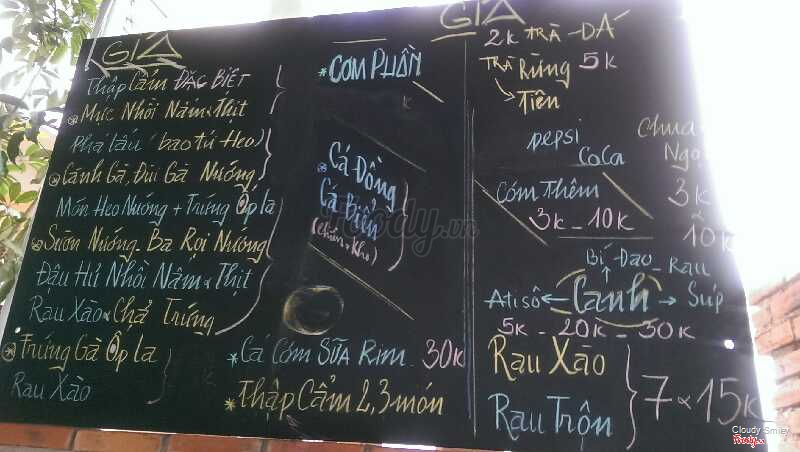 GIÁ
Thập Cẩm ĐẶC BIỆT
Mực Nhồi Nấm & Thịt
Phá lấu (bao tử Heo)
Cánh Gà, Đùi Gà Nướng
Món Heo Nướng + Trứng Ốp la
Sườn Nướng, Ba Rọi Nướng
Đậu Hủ Nhồi Nấm & Thịt
Rau Xào & Chả Trứng
Trứng Gà Ốp la
Rau Xào
* CƠM PHẦN
K
Cá Đồng
Cá Biển
(chiên & kho)
* Cá Cơm SỮA Rim 30K
* Thập Cẩm 2,3 món
GIÁ
2K TRÀ - DÁ
TRÀ Rừng 5K
Tiên
pepsi
CoCa
Cơm Thêm
3K - 10K
Chua
Ngọ
3K
10K
Bí Dao - Rau
Atisô Canh Súp
5K - 20K - 30K
Rau Xào
Rau Trộn
7 & 15K
Foody.vn
Cloudy Smiley
Foody.vn